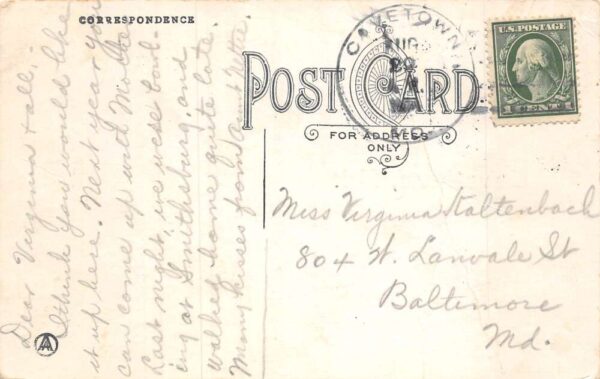 CORRESPONDENCE
CAVETOWN
AUG
29
MD.
U.S. POSTAGE
1 CENT 1
POST CARD
FOR ADDRESS
ONLY
Dear Virginia & all,
I think you would like
it up here. Next year you
can come up with Mother
Last night, we were bowl-
ing at Smithsburg, and
walked home quite late.
Many kisses from Aunt
Miss Virginia Kaltenbach
804 W. Lanvale St
Baltimore
Md.